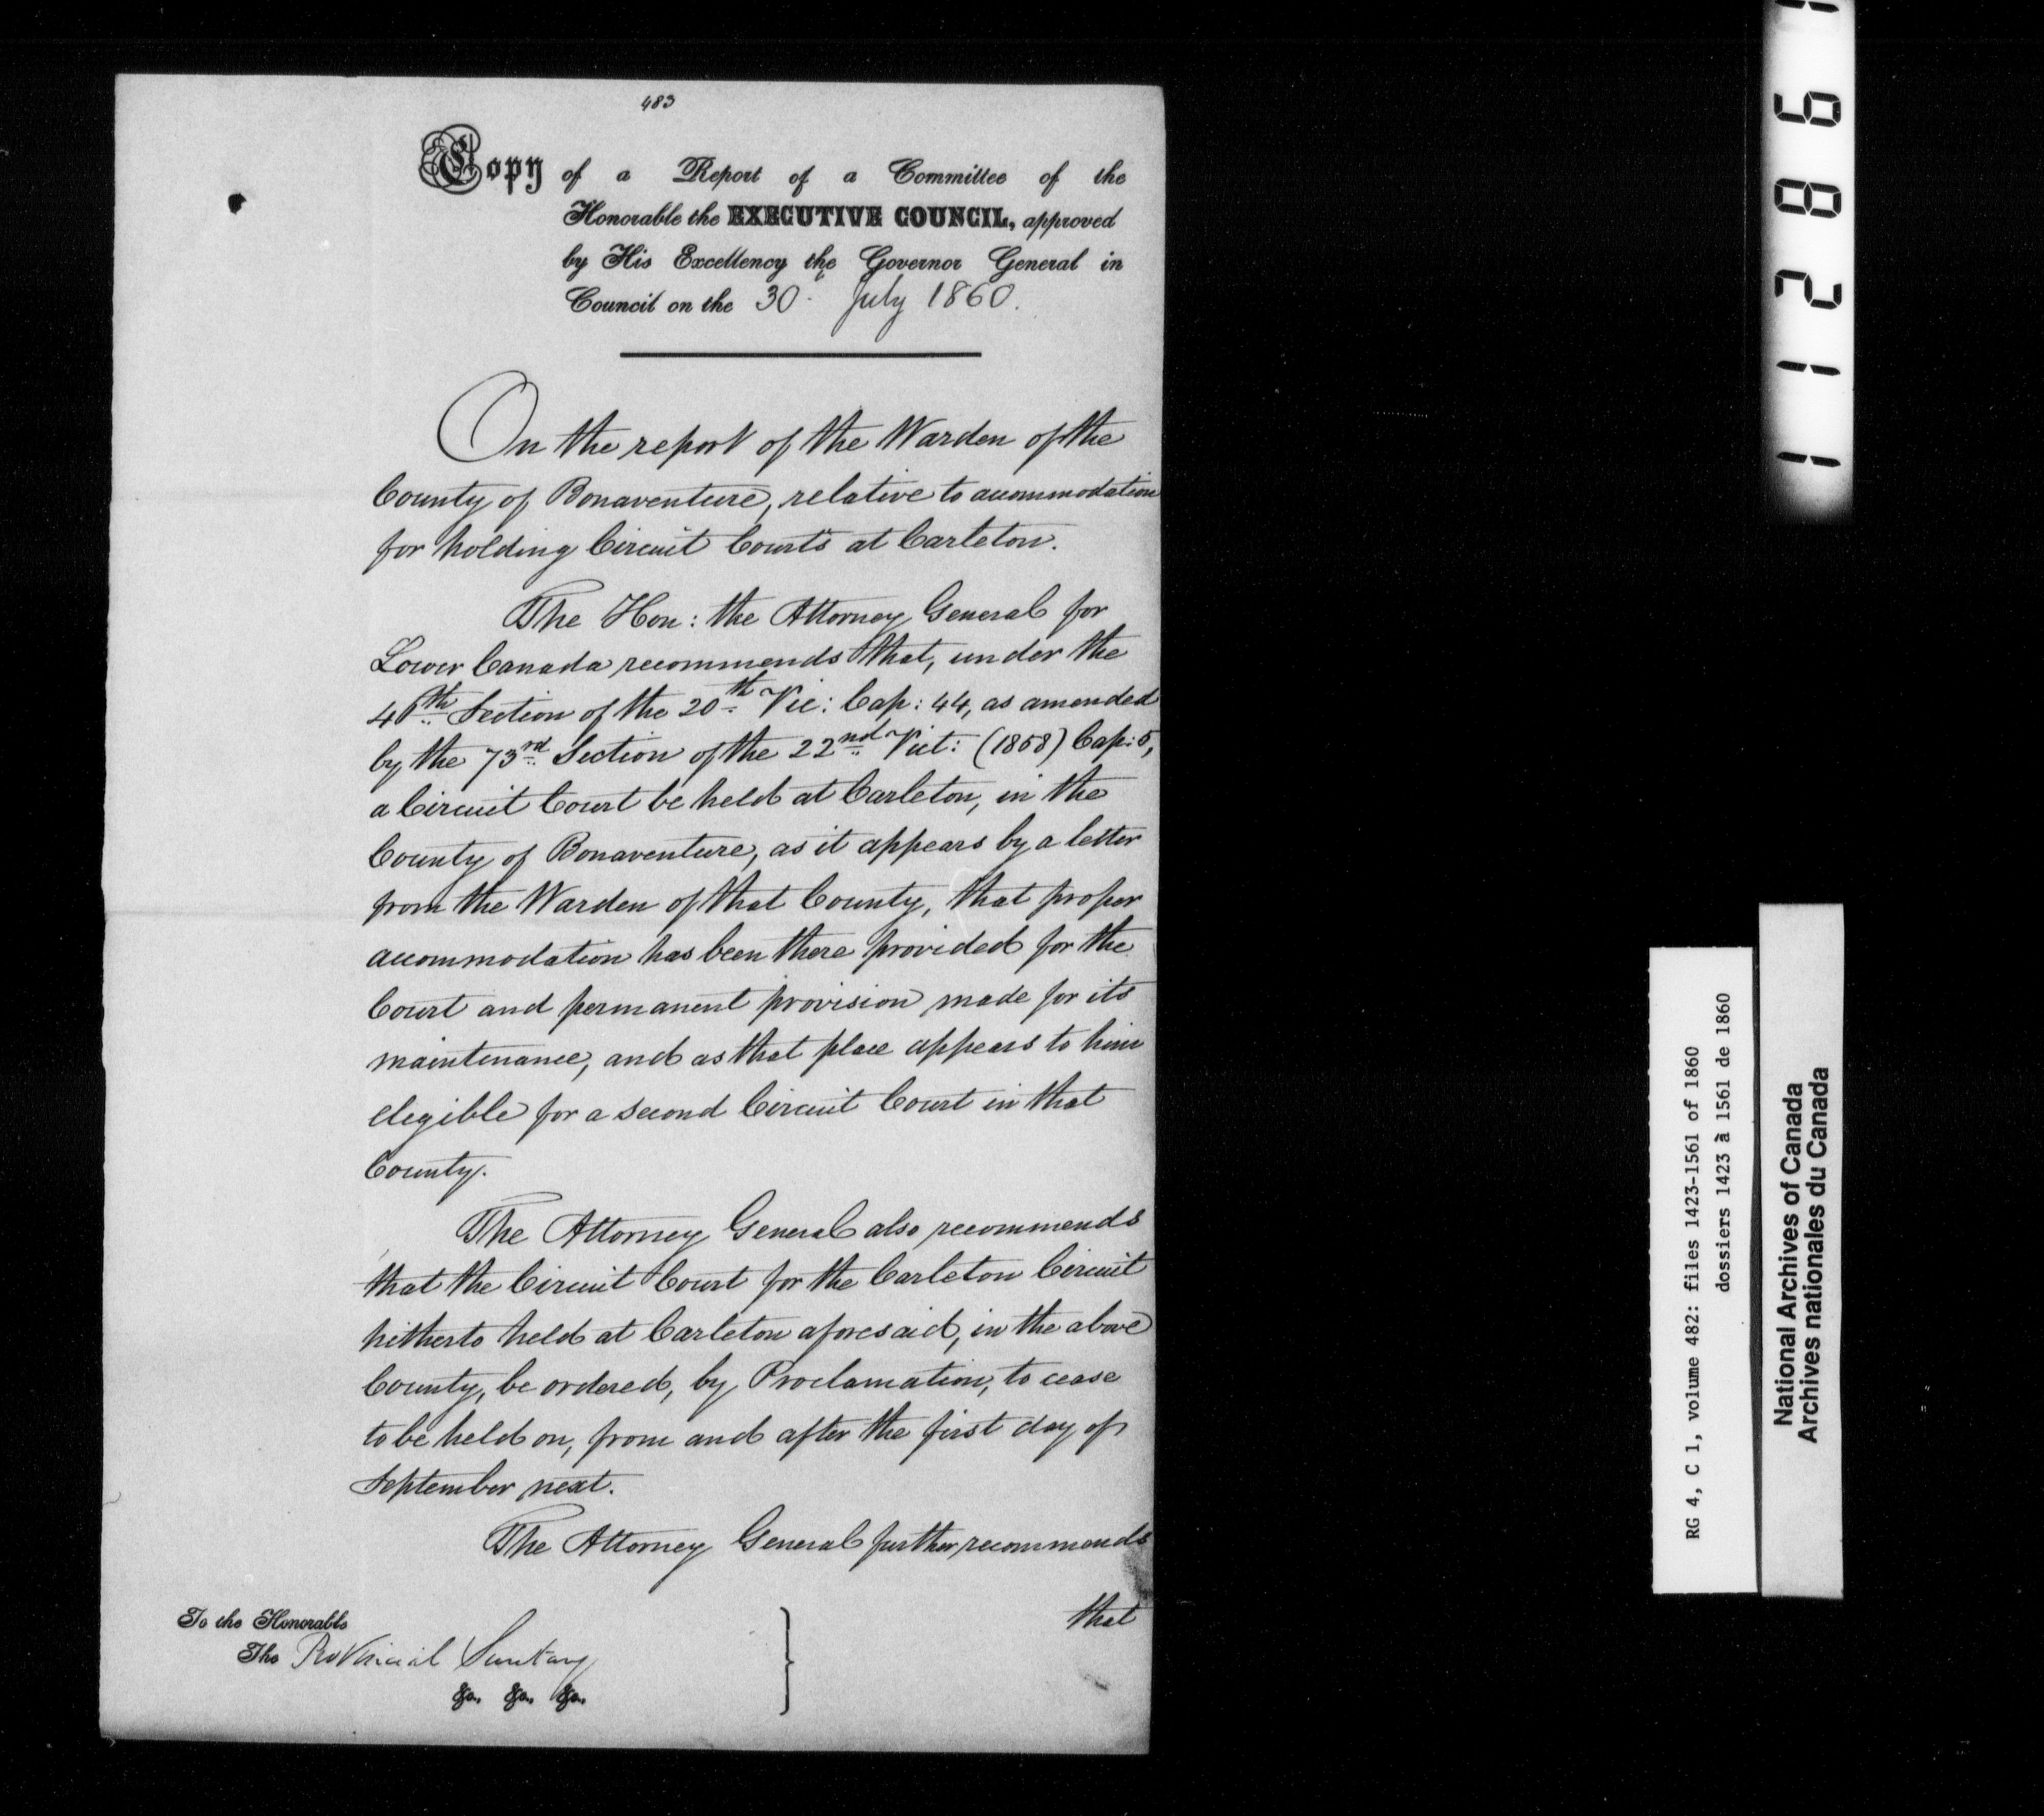 483
Copy of a Report of a Committee of the
Honorable the EXECUTIVE COUNCIL, approved
by His Excellency the Governor General in
Council on the 30 July 1860.
On the report of the Warden of the
County of Bonaventure, relative to accommodation
for holding Circuit Courts at Carleton.
The Hon: the Attorney General for
Lower Canada recommends that, under the
46th Section of the 20th Vic: Cap: 44, as amended
by the 73rd Section of the 22nd Vict: (1858) Cap: 5,
a Circuit Court be held at Carleton, in the
County of Bonaventure, as it appears by a letter
from the Warden of that County, that proper
accommodation has been there provided for the
Court and permanent provision made for its
maintenance, and as that place appears to him
elegible for a second Circuit Court in that
County.
The Attorney General also recommends
that the Circuit Court for the Carleton Circuit
hitherto held at Carleton aforesaid, in the above
County, be ordered, by Proclamation, to cease
to be held on, from and after the first day of
September next.
The Attorney General further recommends
that
To the Honorable
The Provincial Secretary
&c. &c. &c.
112861
RG 4, C 1, volume 482: files 1423-1561 of 1860
dossiers 1423 à 1561 de 1860
National Archives of Canada
Archives nationales du Canada